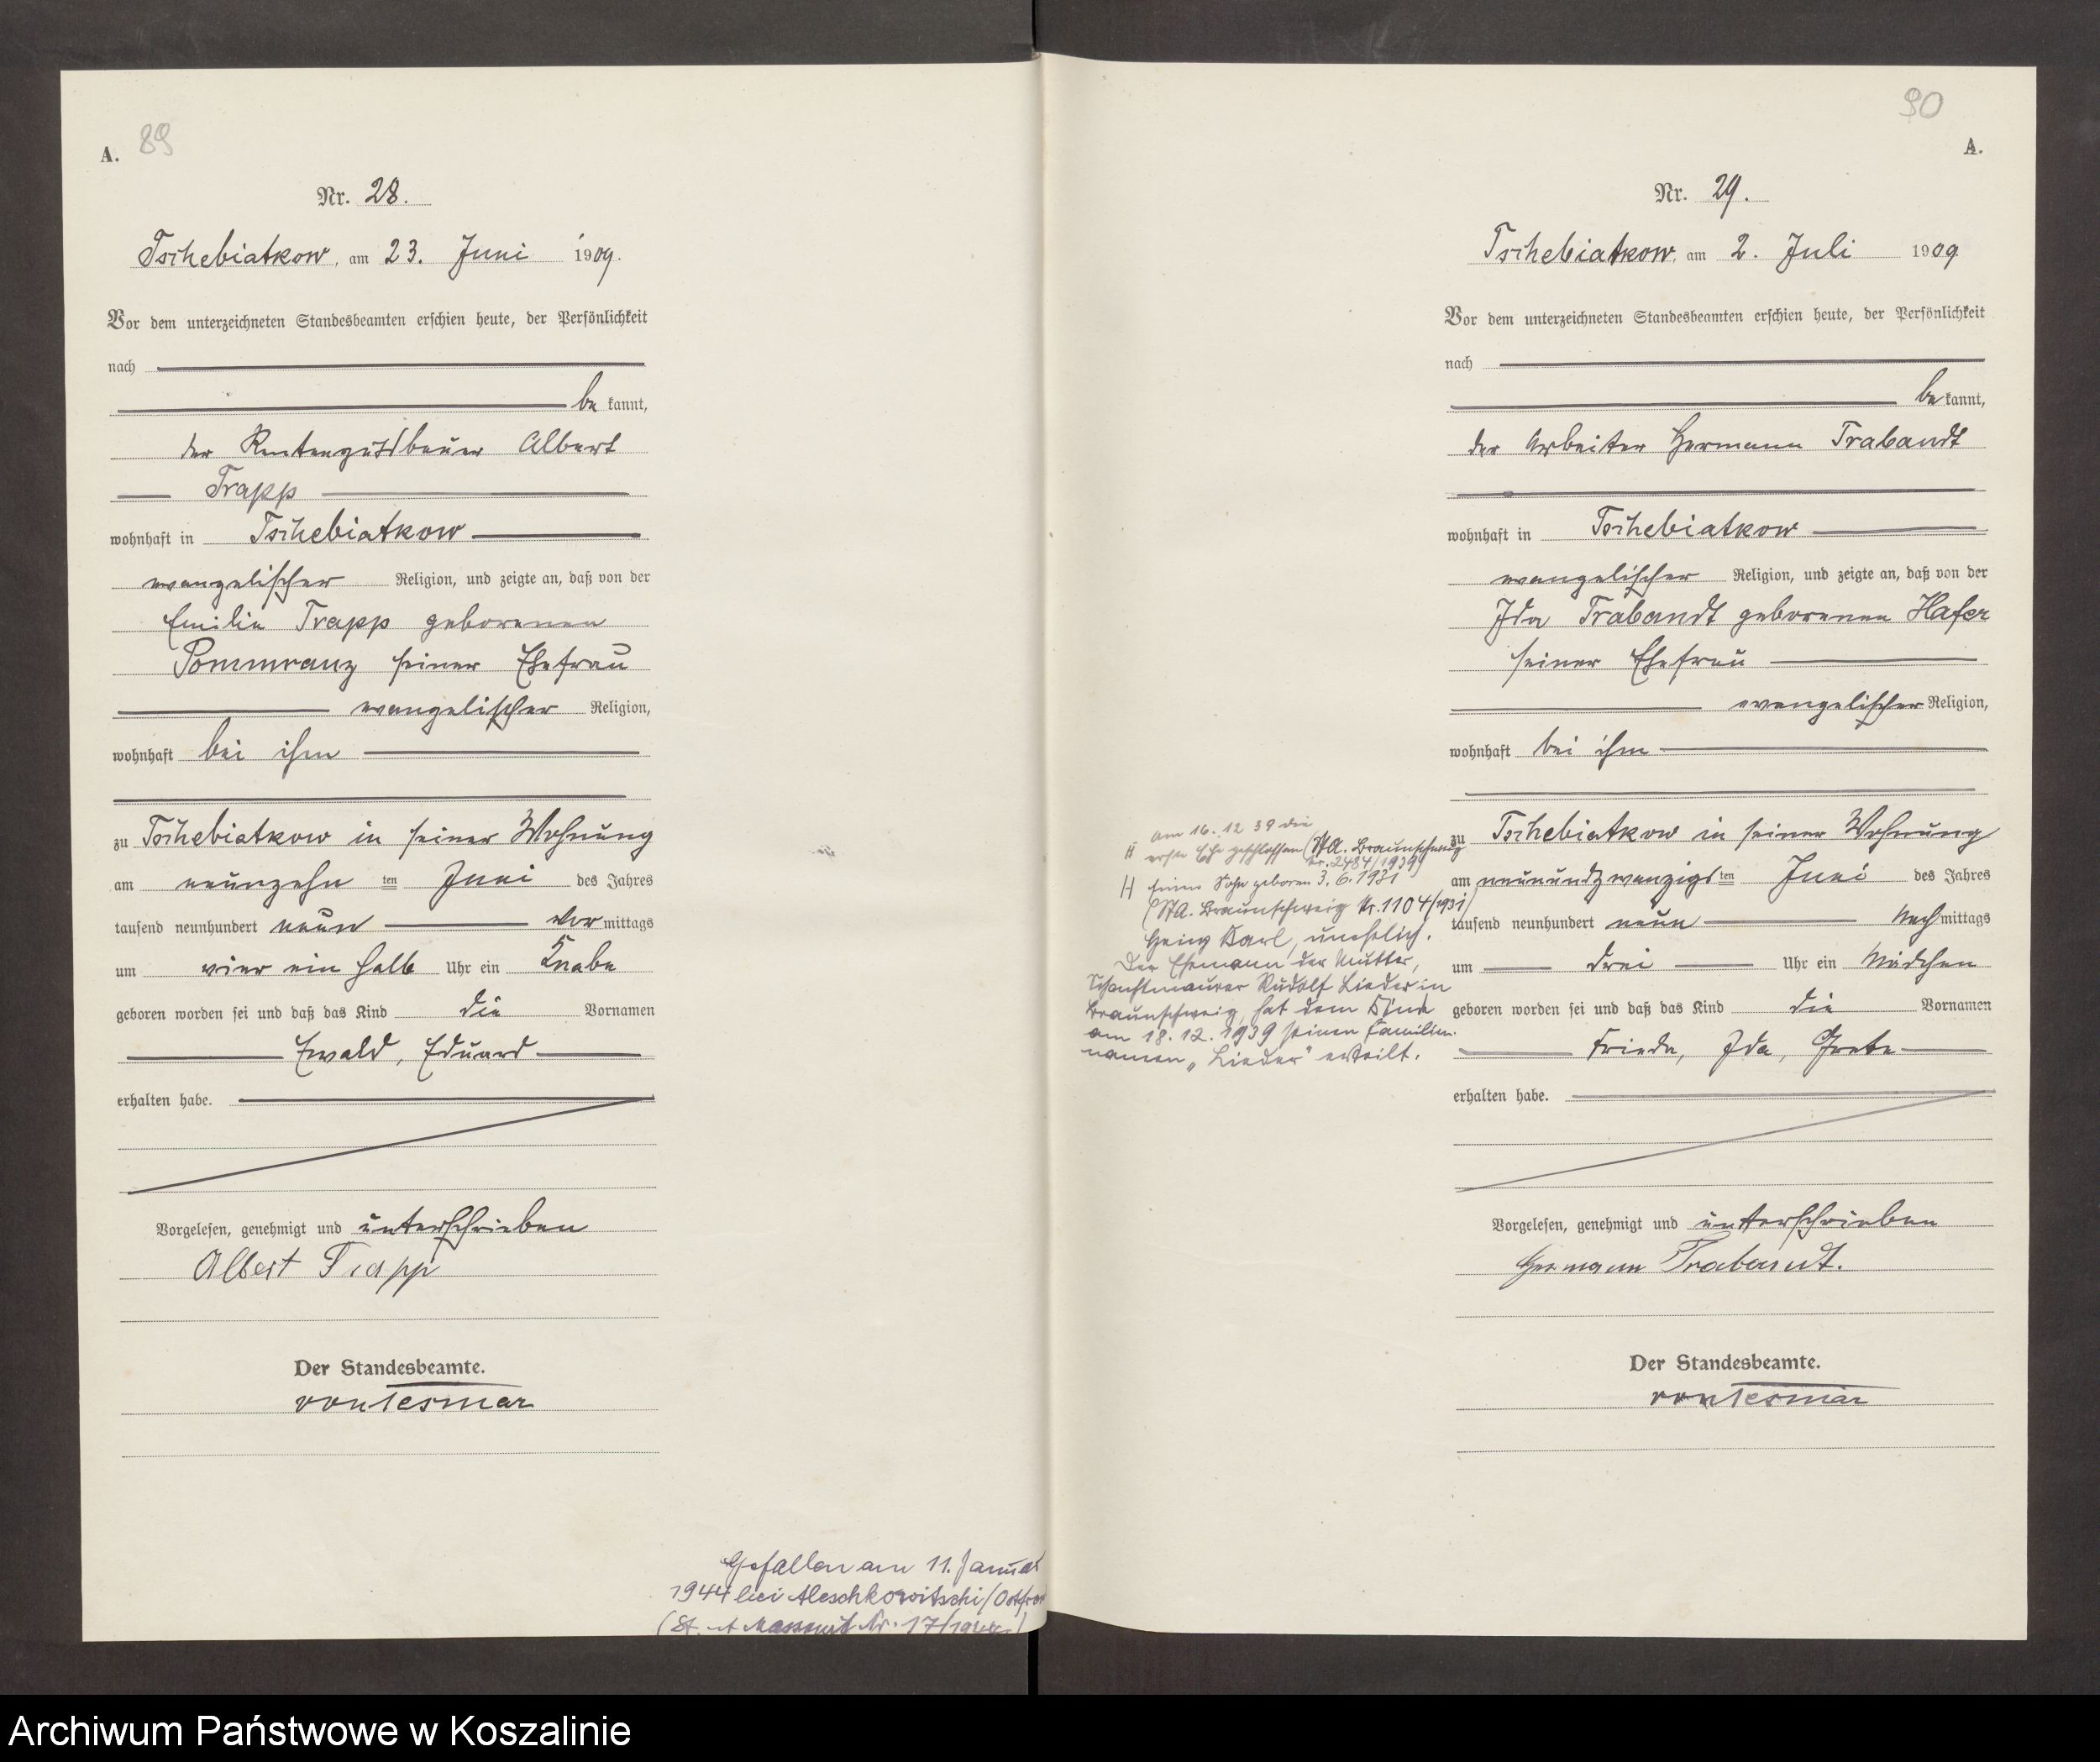 89
A.
Nr. 28.
Tschebiatkow, am 23. Juni 1909.
Vor dem unterzeichneten Standesbeamten erschien heute, der Persönlichkeit
nach
be kannt,
der Rentengutsbauer Albert
Trapp
wohnhaft in Tschebiatkow
evangelischer Religion, und zeigte an, daß von der
Emilie Trapp geborenen
Pommranz seiner Ehefrau
evangelischer Religion,
wohnhaft bei ihm
zu Tschebiatkow in seiner Wohnung
am neunzehn ten Juni des Jahres
tausend neunhundert neun Vor mittags
um vier ein halb Uhr ein Knabe
geboren worden sei und daß das Kind die Vornamen
Ewald, Eduard
erhalten habe.
Vorgelesen, genehmigt und unterschrieben
Albert Trapp
Der Standesbeamte.
von Tesmar
Gefallen am 11. Januar
1944 bei Aleschkowitschi/Ostfron
(St. A Massowit Nr. 17/1944)
90
A.
Nr. 29.
Tschebiatkow, am 2. Juli 1909
Vor dem unterzeichneten Standesbeamten erschien heute, der Persönlichkeit
nach
be kannt,
der Arbeiter Hermann Trabandt
wohnhaft in Tschebiatkow
evangelischer Religion, und zeigte an, daß von der
Ida Trabandt geborenen Hafer
seiner Ehefrau
evangelischer Religion,
wohnhaft bei ihm
zu Tschebiatkow in seiner Wohnung
am neunundzwanzigs ten Juni des Jahres
tausend neunhundert neun Nach mittags
um drei Uhr ein Mädchen
geboren worden sei und daß das Kind die Vornamen
Frieda, Ida, Grete
erhalten habe.
Vorgelesen, genehmigt und unterschrieben
Hermann Trabandt.
Der Standesbeamte.
von Tesmar
am 16. 12 39 die
erste Ehe geschlossen (StA. Braunschweig
Nr. 2484/1939)
H Sohn geboren 3. 6. 1931
(StA. Braunschweig Nr. 1104/1931)
Heinz Karl, unehelich.
Der Ehemann der Mutter,
Schachtmaurer Rudolf Lieder in
Braunschweig, hat dem Kinde
am 18. 12. 1939 seinen Familien-
namen „Lieder" erteilt.
Archiwum Państwowe w Koszalinie